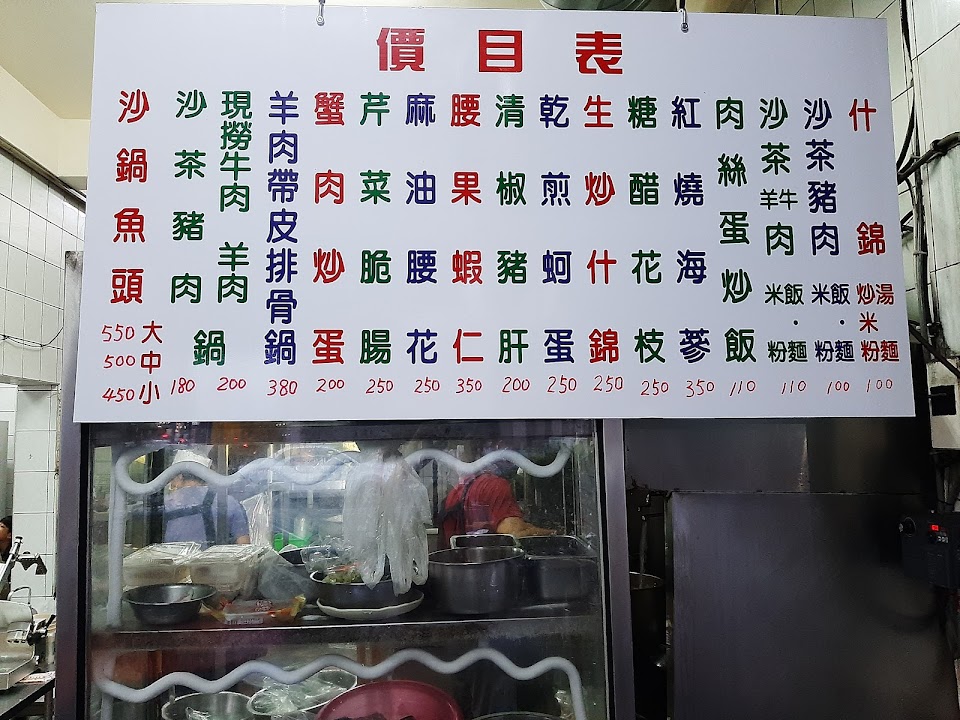 價目表
沙鍋魚頭
550大
500中
450小
沙茶豬肉鍋 180
現撈牛肉 羊肉鍋 200
羊肉帶皮排骨鍋 380
蟹肉炒蛋 200
芹菜脆腸 250
麻油腰花 250
腰果蝦仁 350
清椒豬肝 200
乾煎蚵蛋 250
生炒什錦 250
糖醋花枝 250
紅燒海蔘 350
肉絲蛋炒飯 110
沙茶羊牛肉 米飯·粉麵 110
沙茶豬肉 米飯·粉麵 100
什錦 炒湯米粉麵 100